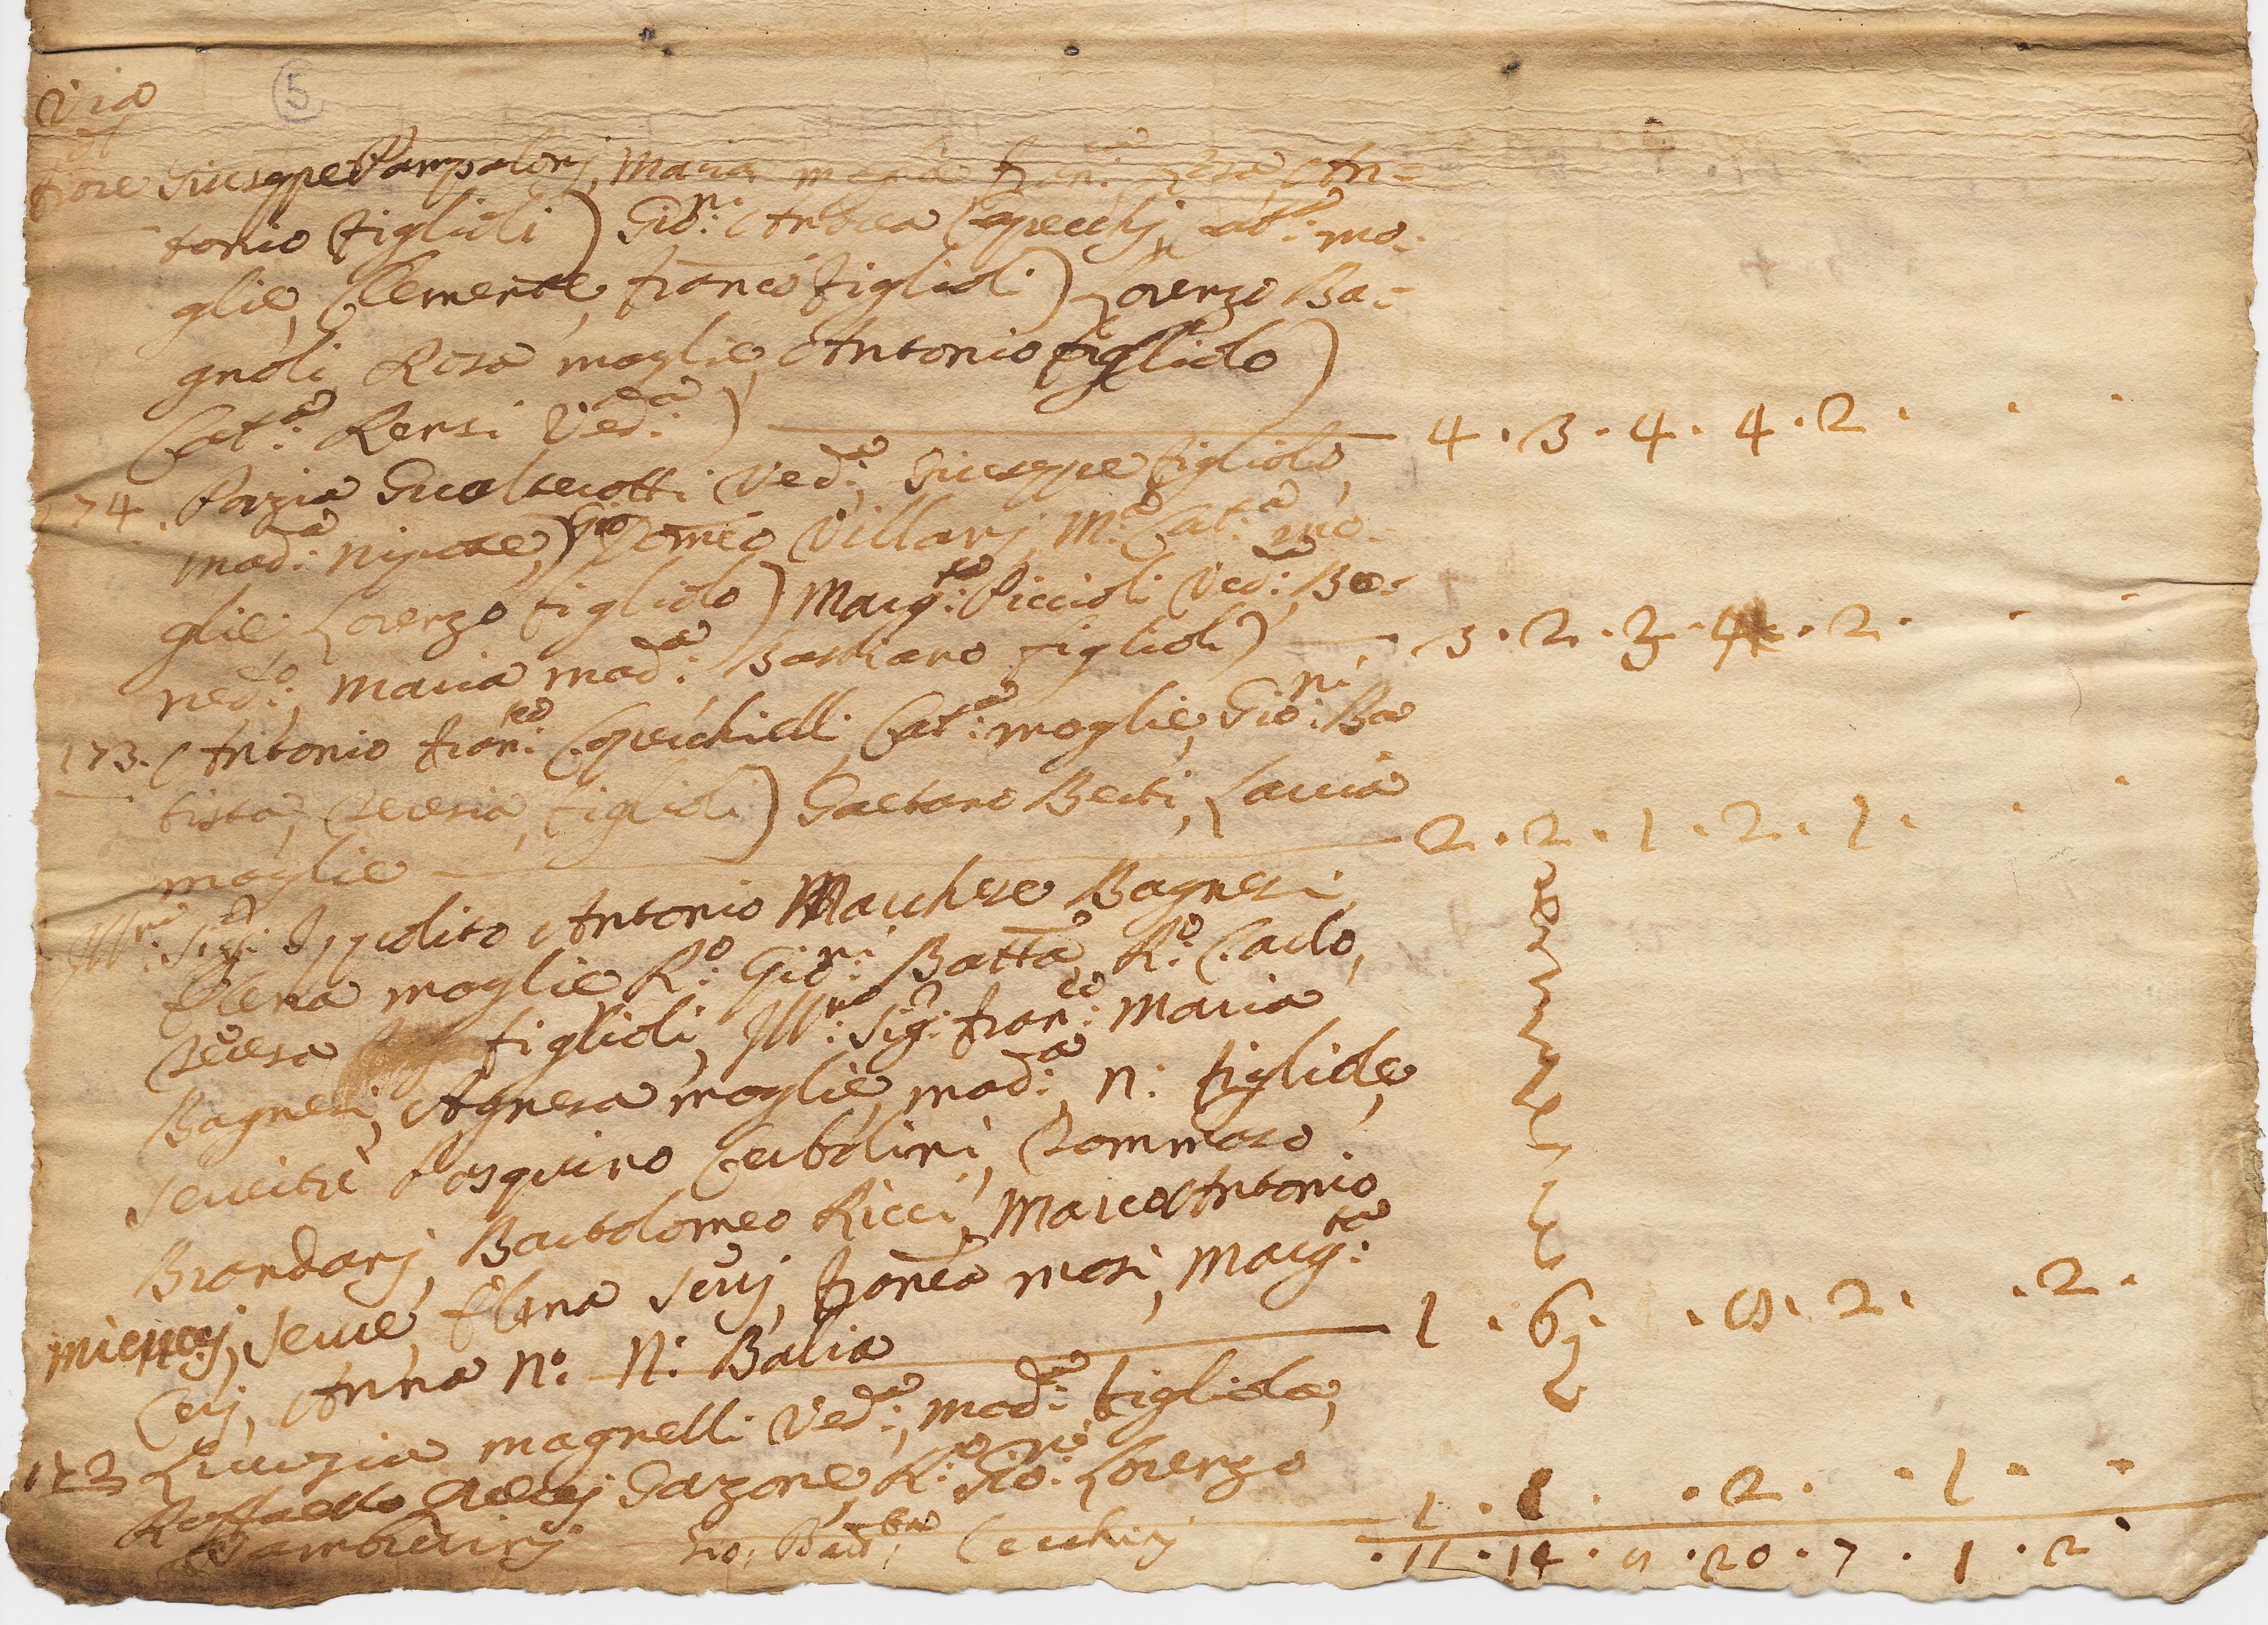 Via
5
di
fiore Giuseppe Pampalonj, Maria moglie Fran:ca Rosa, An=
tonio figlioli) Gio:ni Andrea Capecchj, Cat:a mo=
glie, Clemente, Franco figlioli) Lorenzo Ba=
gnoli, Rosa moglie, Antonio figliolo)
Cat:a Rensi Ved:a) 4 . 3 . 4 . 4 . 2 . . .
174. Porzia Gualterotti Ved:a, Giuseppe figliolo,
Mad:a Nipote) Gio Domco Villarj, M:a Cat:a mo=
glie, Lorenzo figliolo) Marg:ta Piccioli Ved:a, Be=
ned:o, Maria Mad:a Bastiano figlioli) 3 . 2 . 3 . 4 . 2 . . .
173. Antonio Fran:co Capecchielli, Cat:a moglie, Gio:ni Ba
tista, Teresia, figlioli) Gaetano Berti, Laura
moglie 2 . 2 . 1 . 2 . 1 . . .
Ill:ri Sig:ri Ippolito Antonio Marchese Bagnesi
Elena moglie, R:o Gio:ni Batta, R:o Carlo,
Teresa figlioli, Ill:mo Sig:r Fran:co Maria
Bagnesi, Agnesa moglie, Mad:a, N: figliole,
Servitri Pasquino Cerbolini, Tommaso
Brandanj, Bartolomeo Ricci, Marco Antonio
Serve, Elena Serj, Franca Masi, Marg:ta
Cerj, Anna N: N: Balia 1 . 6 . . 9 . 2 . . 2 .
172 Lucrezia Magnelli Ved:a, Mad:a figliola,
Raffaello Garzone, R:o Gio:ni Lorenzo
Tamburinj Gio: Batt:a Cecchinj 1 . 1 . . 2 . . 1 . .
. 11 . 14 . 9 . 20 . 7 . 1 . 2 .